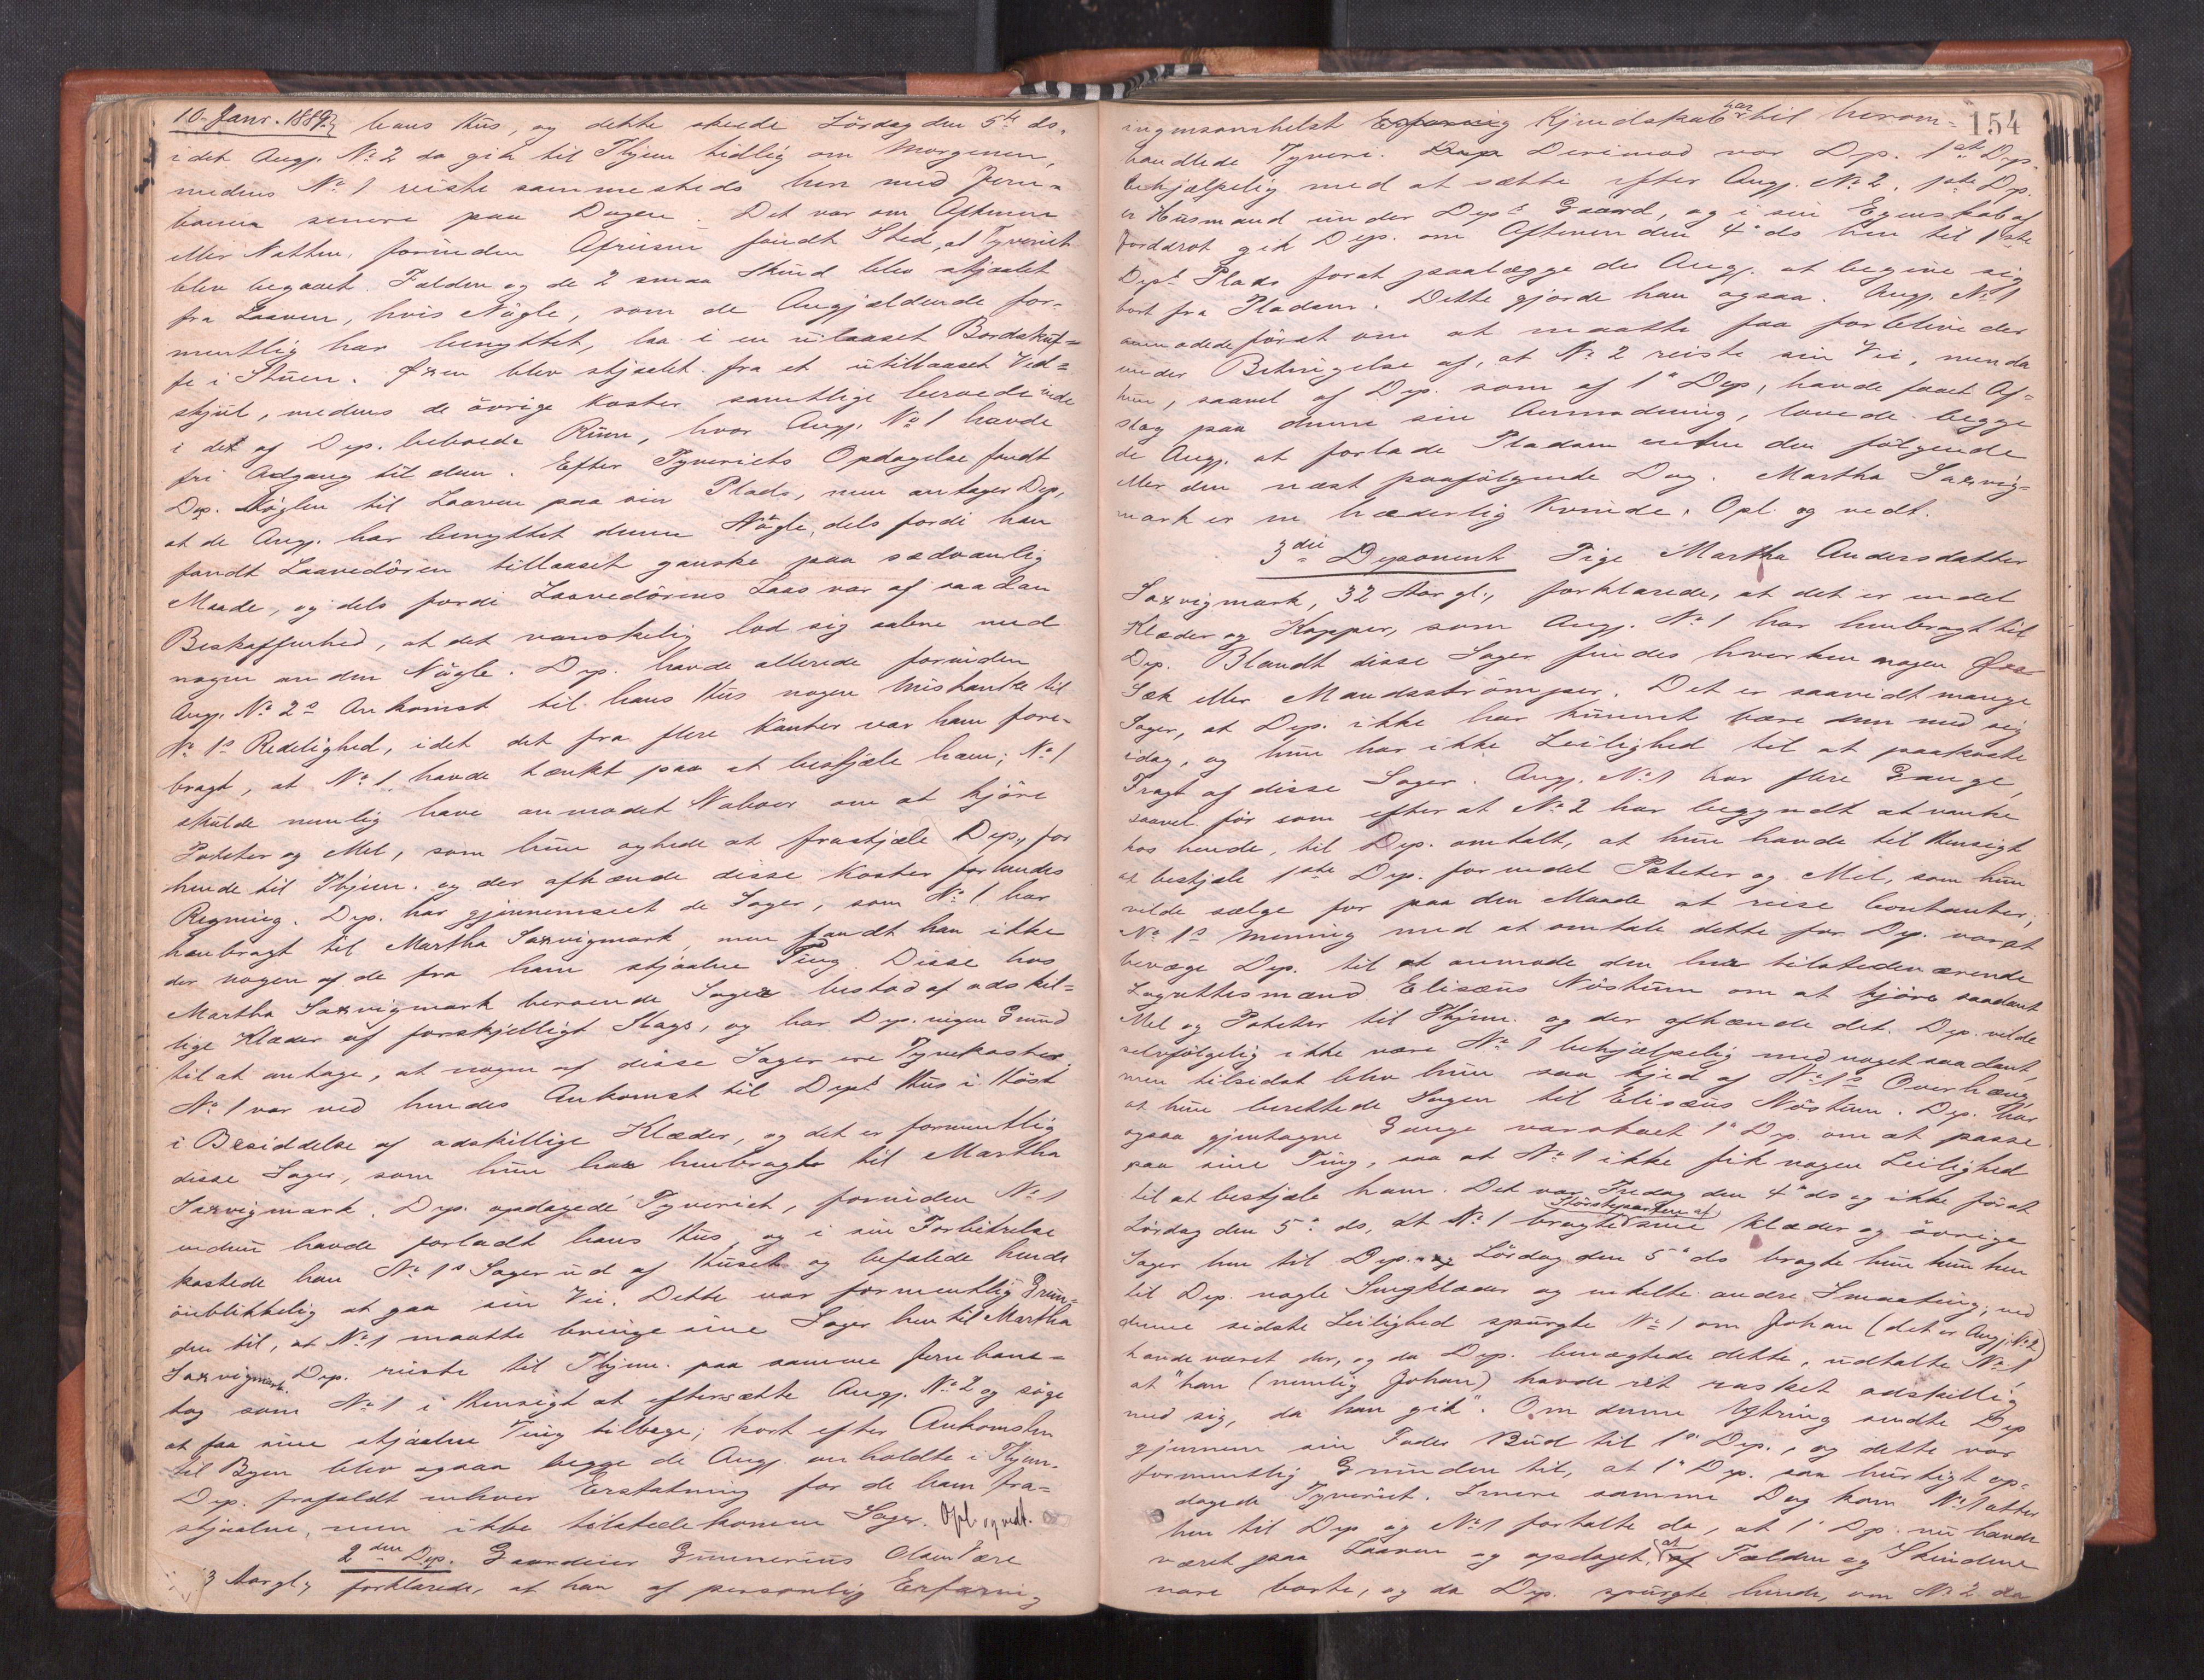 10. Janr. 1889. hans Hus, og dette skede Lördag den 5te ds.
idet Angj. No 2 da gik til Thjem tidlig om Morgenen,
medens No 1 reiste sammesteds hen med Jern=
banen senere paa Dagen. Det var om Aftenen
eller Natten, forinden Afreisen fandt Sted, at Tyveriet
blev begaaet. Falden og de 2 smaa Skind blev stjaalet
fra Laaven, hvis Nögle, som de Angjældende for=
mentlig har benyttet, laa i en ulaaset Bordskuf=
fe i Stuen. Øxen blev stjaalet fra et utillaaset Ved=
skjul, medens de övrige Koster samtlige beroede inde
i det af Dep. beboede Rum, hvor Angj. No 1 havde
fri Adgang til dem. Efter Tyveriets Opdagelse fandt
Dep. Nöglen til Laaven paa sin Plads, men antager Dep.
at de Angj. har benyttet denne Nögle, dels fordi han
fandt Laavedören tillaaset ganske paa sædvanlig
Maade, og dels fordi Laavedörens Laas var af saadan
Beskaffenhed, at det vanskelig lod sig aabne med
nogen anden Nögle. Dep. havde allerede forinden
Angj. No 2s Ankomst til hans Hus nogen Mistanke til
No 1s Redelighed, idet det fra flere Kanter var ham fore=
bragt, at No 1 havde tænkt paa at bestjæle ham; No 1
skulde nemlig have anmodet Naboer om at kjöre
Poteter og Mel, som hun agtede at frastjæle Dep., for
hende til Thjem. og der afhænde disse Koster for hendes
Regning. Dep. har gjennemseet de Sager, som No 1 har
henbragt til Martha Saxvigmark, men fandt han ikke
der nogen af de fra ham stjaalne Ting. Disse hos
Martha Saxvigmark beroende Sager bestod af adskil=
lige Klæder af forskjelligt Slags, og har Dep. ingen Grund
til at antage, at nogen af disse Sager ere Tyvekoster.
No 1 var ved hendes Ankomst til Deps Hus i Höst
i Besiddelse af adskillige Klæder, og det er formentlig
disse Sager, som hun har henbragt til Martha
Saxvigmark. Dep. opdagede Tyveriet, forinden No 1
endnu havde forladt hans Hus, og i sin Forbitrelse
kastede han No 1s Sager ud af Huset og befalede hende
öieblikkelig at gaa sin Vei. Dette var formentlig Grun=
den til, at No 1 maatte bringe sine Sager hen til Martha
Saxvigmark. Dep. reiste til Thjem. paa samme Jernbane=
tog som No 1 i Hensigt at eftersætte Angj. No 2 og söge
at faa sine stjaalne Ting tilbage; kort efter Ankomsten
til Byen blev ogsaa begge de Angj. anholdte i Thjem.
Dep. frafaldt enhver Erstatning for de ham fra=
stjaalne, men ikke tilstedekomne Sager. Opl. og vedt.
2den Dep. Gaardeier Gunnerius Olsen Være
3 Aar gl., forklarede, at han af personlig Erfaring
154
ingensomhelst Erfaring Kjendskab har til herom=
handlede Tyveri. Dep Derimod var Dep. 1ste Dep.
behjælpelig med at sætte efter Angj. No 2. 1ste Dep.
er Husmand under Deps Gaard, og i sin Egenskab af
Jorddrot gik Dep. om Aftenen den 4de ds hen til 1ste
Deps Plads forat paalægge de Angj. at begive sig
bort fra Pladsen. Dette gjorde han ogsaa. Angj. No 1
anmodede först om at maatte faa forblive der
under Betingelse af, at No 2 reiste sin Vei, men da
hun, saavel af Dep. som af 1ste Dep, havde faaet Af=
slag paa denne sin Anmodning, lovede begge
de Angj. at forlade Pladsen enten den fölgende
eller den næst paafölgende Dag. Martha Saxvig=
mark er en hæderlig Kvinde. Opl. og vedt.
3die Deponent Pige Martha Andersdatter
Saxvigmark, 32 Aar gl., forklarede, at det er endel
Klæder og Kopper, som Angj. No 1 har henbragt til
Dep. Blandt disse Sager findes hverken nogen Øxe
Sæk eller Mandsströmper. Det er saavidt mange
Sager, at Dep. ikke har kunnet bære dem med sig
idag, og hun har ikke Leilighed til at paakoste
Fragt af disse Sager. Angj. No 1 har flere Gange,
saavel för som efter at No 2 har begyndt at vanke
hos hende, til Dep. omtalt, at hun havde til Hensigt
at bestjæle 1ste Dep. for endel Poteter og Mel, som hun
vilde sælge for paa den Maade at reise Contanter;
No 1s Mening med at omtale dette for Dep. var at
bevæge Dep. til at anmode den her tilstedeværende
Lagrettesmand Elisæus Nöstum om at kjöre saadant
Mel og Poteter til Thjem. og der afhænde det. Dep. vilde
selvfölgelig ikke være No 1 behjælpelig med noget saadant,
men tilsidst blev hun saa kjed af No 1s Overhæng
at hun berettede Sagen til Elisæus Nöstum. Dep. har
ogsaa gjentagne Gange varskoet 1ste Dep. om at passe
paa sine Ting, saa at No 1 ikke fik nogen Leilighed
til at bestjæle ham. Det var Fredag den 4de ds og ikke först
Lördag den 5te ds, at No 1 bragte Störsteparten af sine Klæder og övrige
Sager hen til Dep. og Lördag den 5te ds bragte hun hun hen
til Dep. nogle Sengklæder og enkelte andre Smaating; ved
denne sidste Leilighed spurgte No 1 om Johan (det er Angj. No 2)
havde været der, og da Dep. benægtede dette, udtalte No 1,
at "han (nemlig Johan) havde vist rasket adskillig
med sig, da han gik". Om denne Ytring sendte Dep
gjennem sin Fader Bud til 1ste Dep., og dette var
formentlig Grunden til, at 1ste Dep. saa hurtigt op=
dagede Tyveriet. Senere samme Dag kom No 1 atter
hen til Dep og No 1 fortalte da, at 1ste Dep. nu havde
været paa Laaven og opdaget, at af Falden og Skindene
vare borte, og da Dep. spurgte hende, om No 2 da